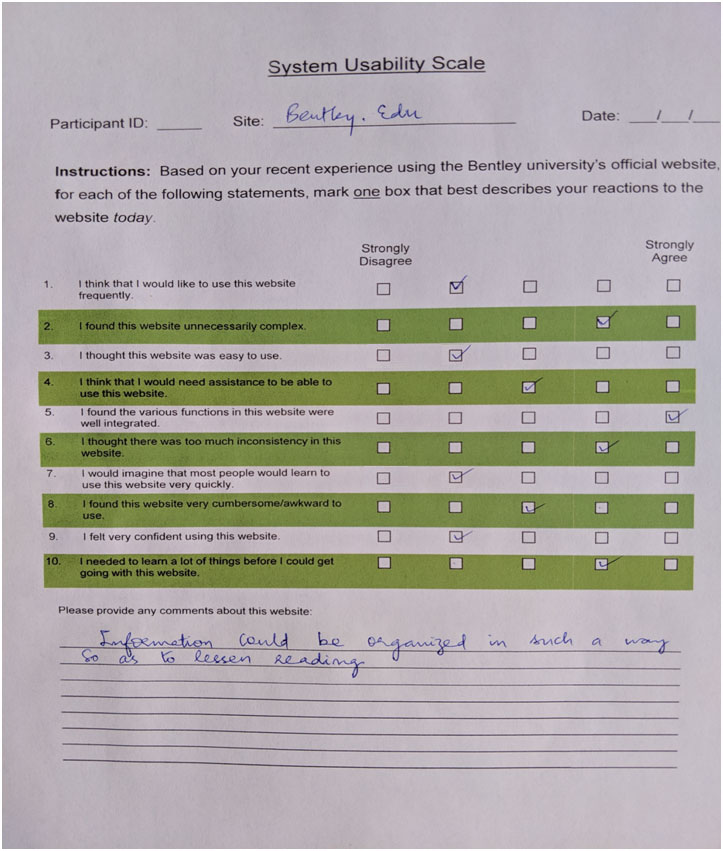 System Usability Scale
Participant ID: _____ Site: Bentley. Edu Date: __/__/__
Instructions: Based on your recent experience using the Bentley university's official website,
for each of the following statements, mark one box that best describes your reactions to the
website today.
Strongly Disagree Strongly Agree
1. I think that I would like to use this website
frequently.
2. I found this website unnecessarily complex.
3. I thought this website was easy to use.
4. I think that I would need assistance to be able to
use this website.
5. I found the various functions in this website were
well integrated.
6. I thought there was too much inconsistency in this
website.
7. I would imagine that most people would learn to
use this website very quickly.
8. I found this website very cumbersome/awkward to
use.
9. I felt very confident using this website.
10. I needed to learn a lot of things before I could get
going with this website.
Please provide any comments about this website:
Information could be organized in such a way
So as to lessen reading